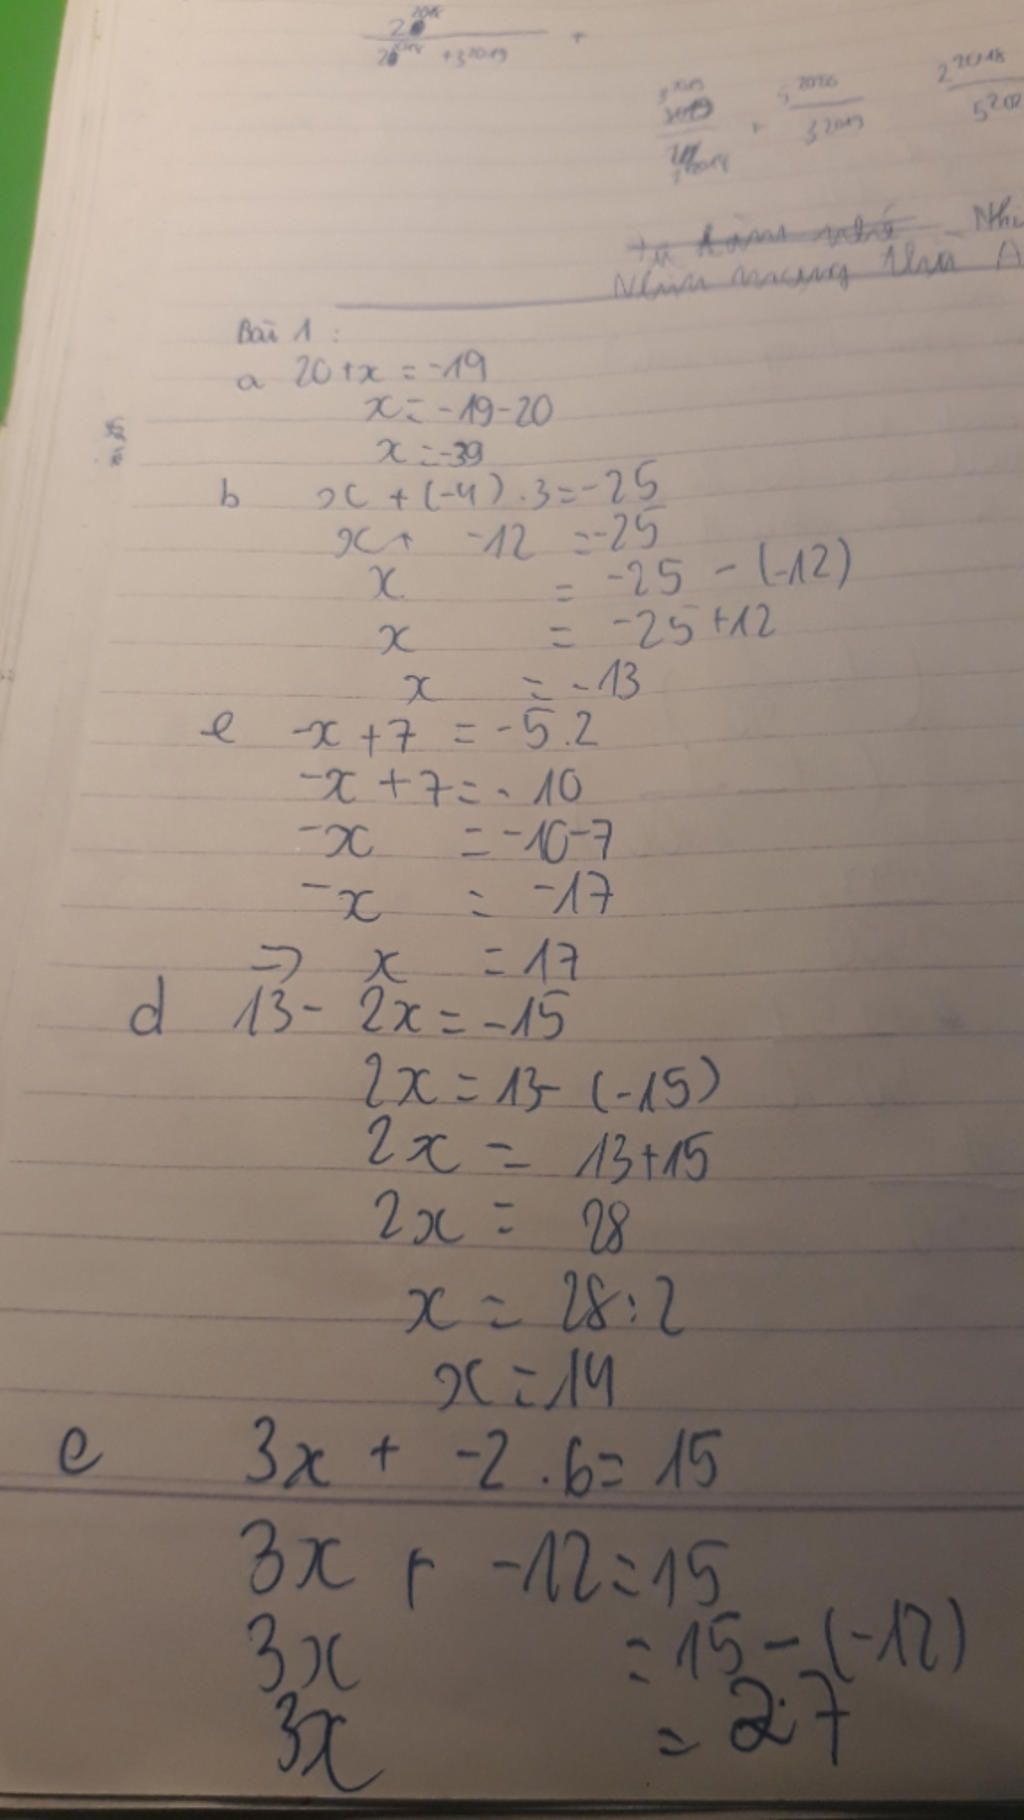 2²⁰¹⁸ +
2²⁰¹⁸ + 3²⁰¹⁹
5²⁰²⁰ 2²⁰¹⁸
+ 3²⁰¹⁹
Bài 1:
a 20+x=-19
x=-19-20
x=-39
b x+(-4).3=-25
x+ -12 =-25
x = -25 - (-12)
x = -25+12
x = -13
c -x+7 = -5.2
-x+7=-10
-x = -10-7
-x = -17
=> x = 17
d 13- 2x=-15
2x=13-(-15)
2x = 13+15
2x = 28
x = 28:2
x=14
e 3x + -2.6=15
3x + -12=15
3x =15-(-12)
3x = 27